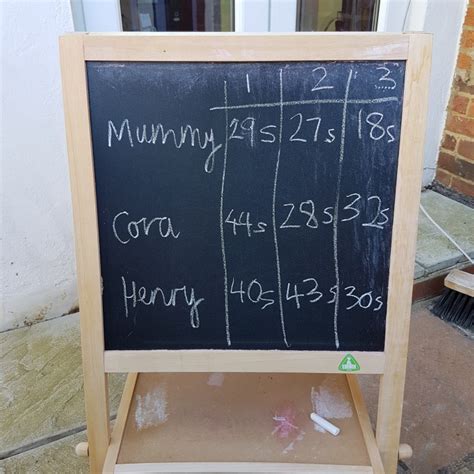 1 2 3
Mummy 29s 27s 18s
Cora 44s 28s 32s
Henry 40s 43s 30s